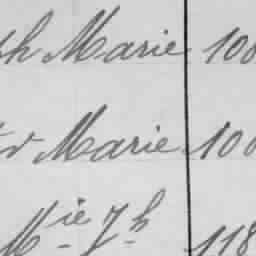 ph Marie 108
Marie 100
Mie Jh 118